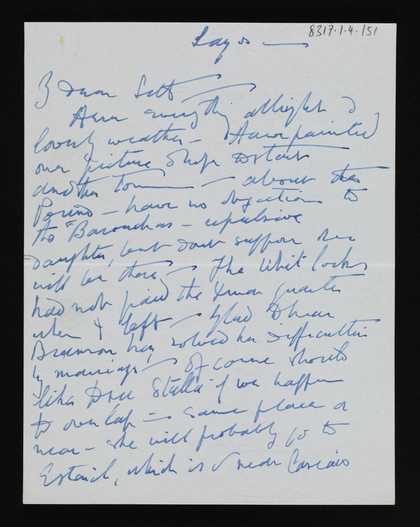 8317.1.4.151
Lagos —
Dear
Have everything alright &
lovely weather — Have painted
one picture & shall start
another tom— — about the
— have no objection to
the — repulsive
daughter, but don't suppose she
will be there — The Whitlocks
had not paid the Xmas quarter
when I left — glad D hear
has solved her difficulties
by marriage — of course should
like to see Stella if we happen
to overlap — same place or
near — she will probably go to
Estoril, which is nr Cascais